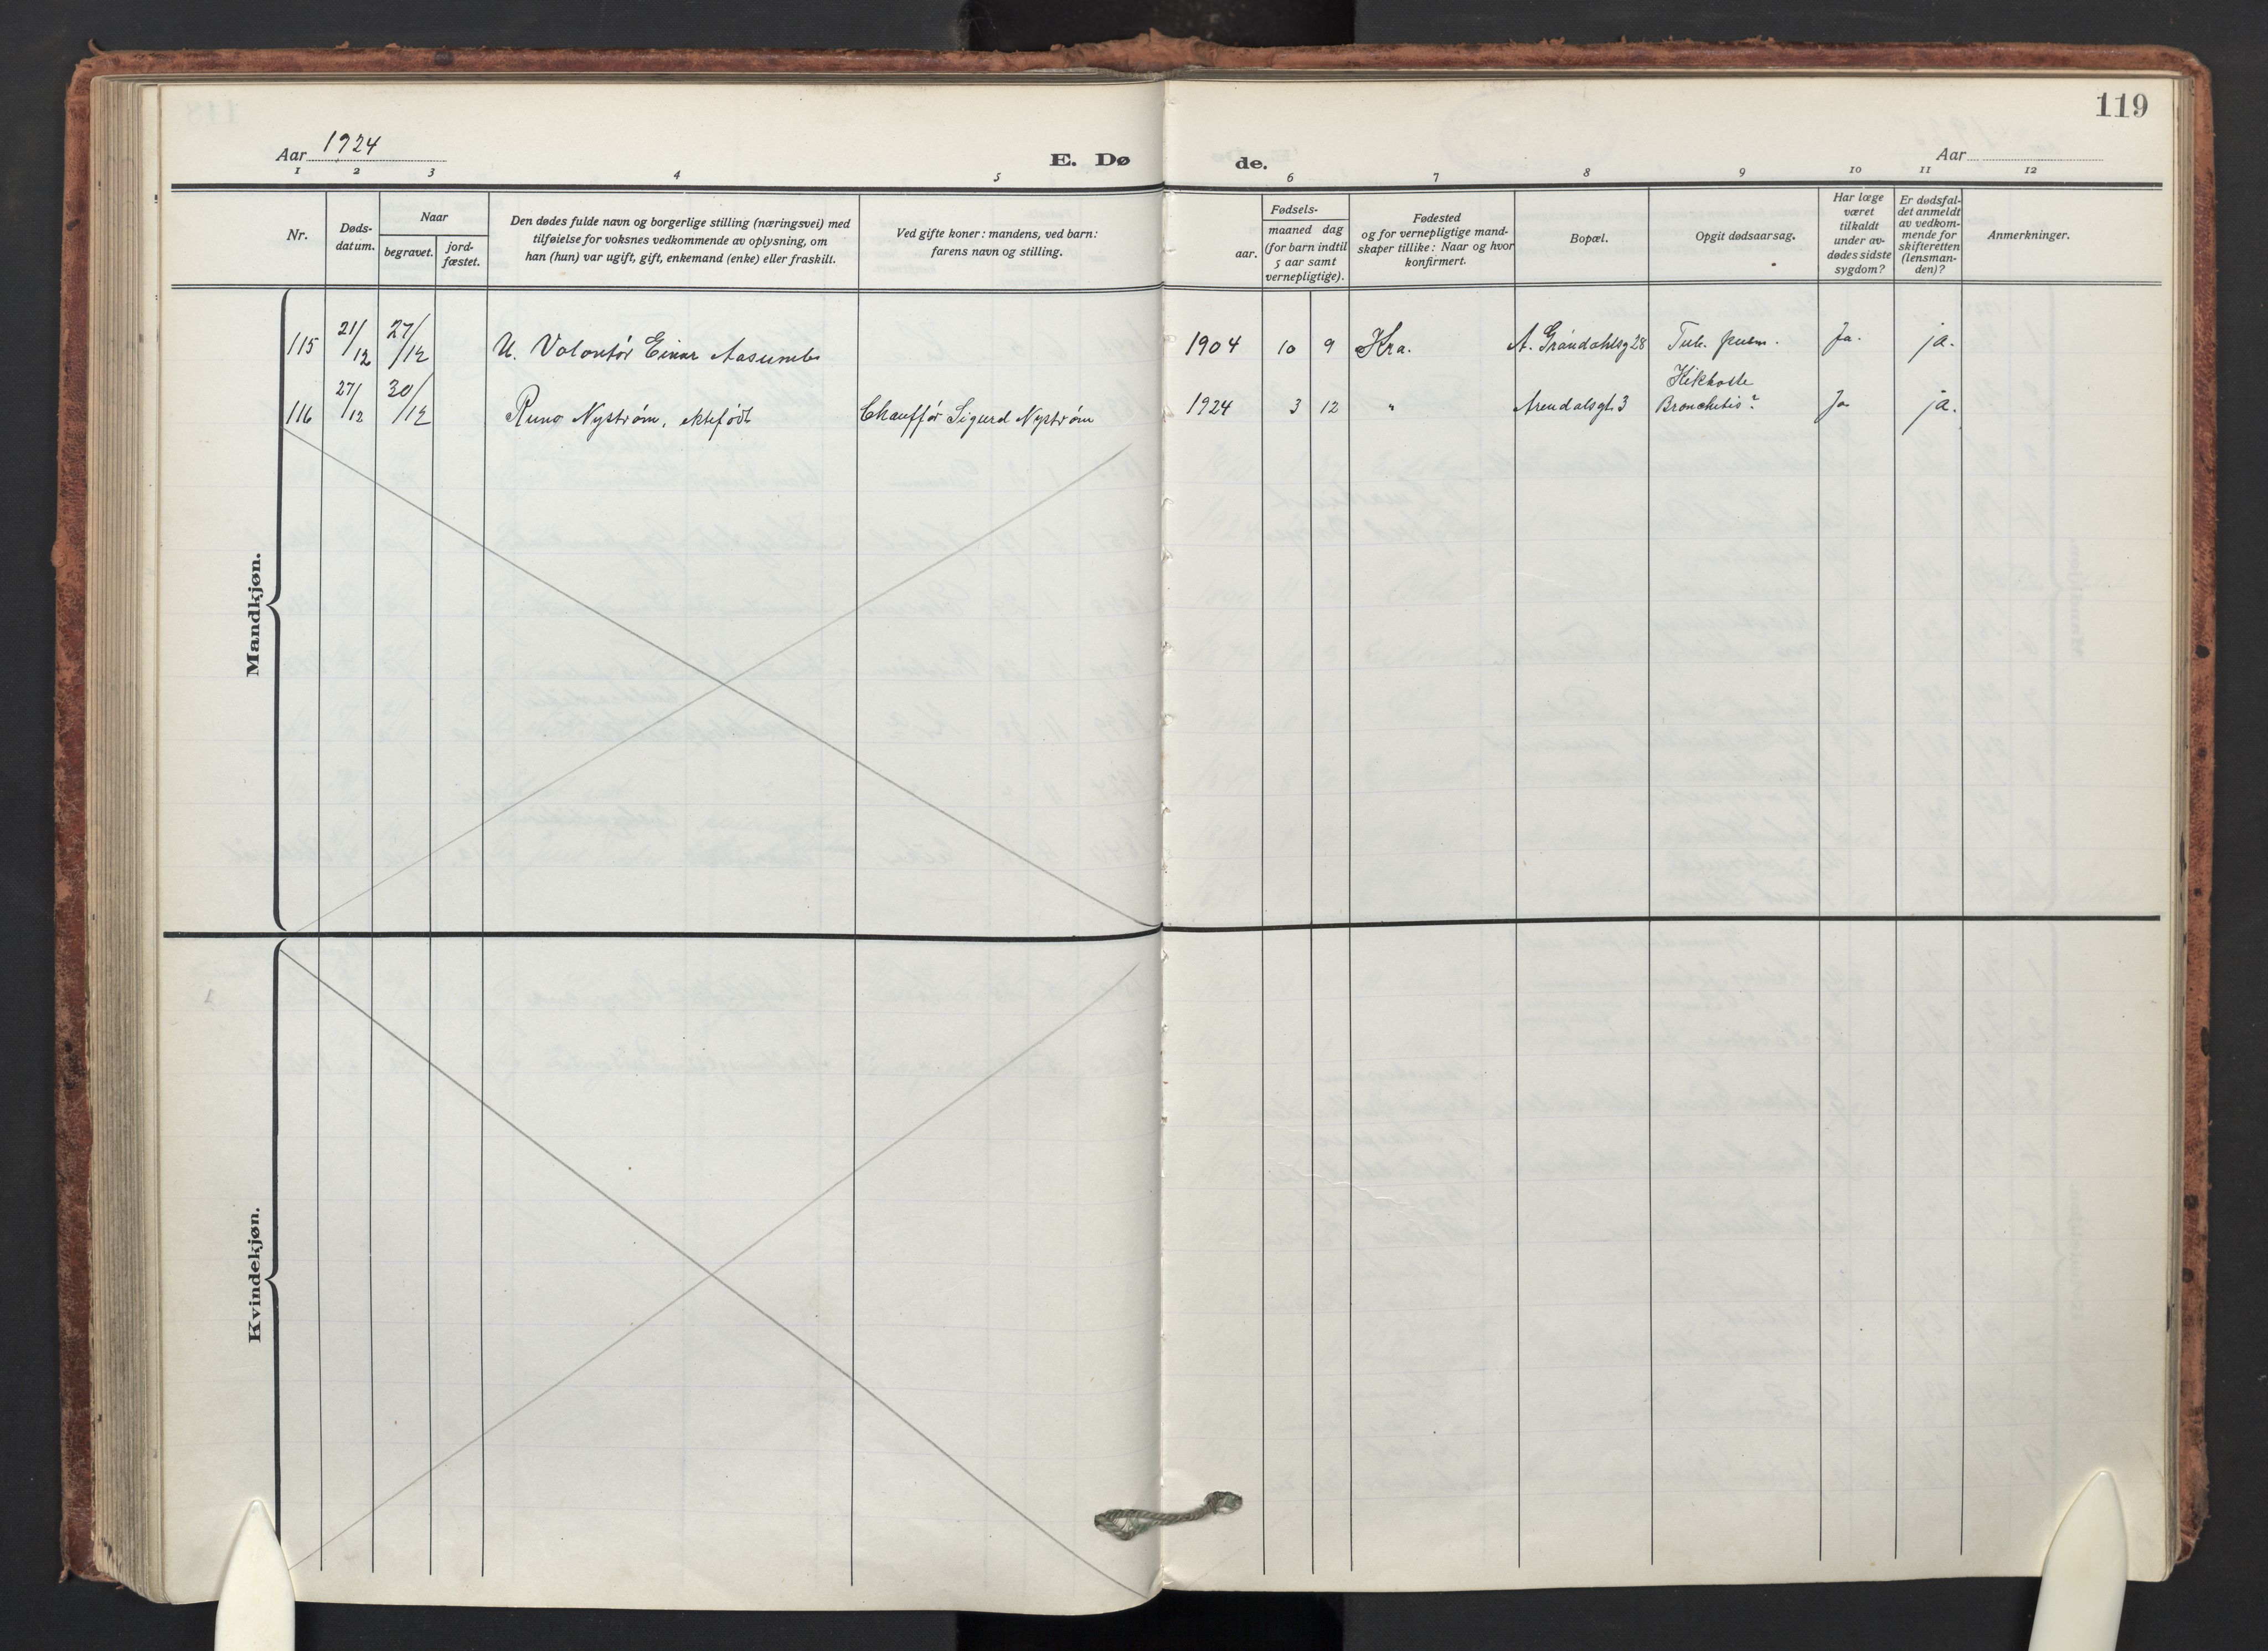 119
Aar 1924
E. Dø
de.
Aar
1 2 3 4 5 6 7 8 9 10 11 12
Nr.
Døds-
datum.
Naar
begravet.
jord-
fæstet.
Den dødes fulde navn og borgerlige stilling (næringsvei) med
tilføielse for voksnes vedkommende av oplysning, om
han (hun) var ugift, gift, enkemand (enke) eller fraskilt.
Ved gifte koner: mandens, ved barn:
farens navn og stilling.
Fødsels-
aar.
maaned dag
(for barn indtil
5 aar samt
vernepligtige).
Fødested
og for vernepligtige mand-
skaper tillike: Naar og hvor
konfirmert.
Bopæl.
Opgit dødsaarsag.
Har læge
været
tilkaldt
under av-
dødes sidste
sygdom?
Er dødsfal-
det anmeldt
av vedkom-
mende for
skifteretten
(lensman-
den)?
Anmerkninger.
Mandkjøn.
115 21/12 27/12 U. Volontør Einar 1904 10 9 Kra. A. Grøndahlsg 28 Tub. pulm. Ja. ja.
Kikhoste
116 27/12 30/12 Runo Nystrøm, ektefødt Chauffør Sigurd Nystrøm 1924 3 12 " Arendalsgt. 3 Bronchitis? Ja ja.
Kvindekjøn.